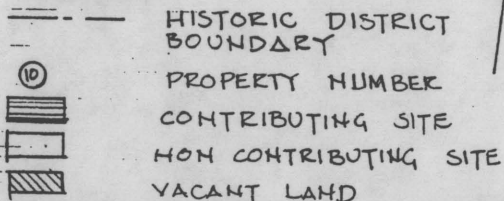 HISTORIC DISTRICT
BOUNDARY
10 PROPERTY NUMBER
CONTRIBUTING SITE
NON CONTRIBUTING SITE
VACANT LAND